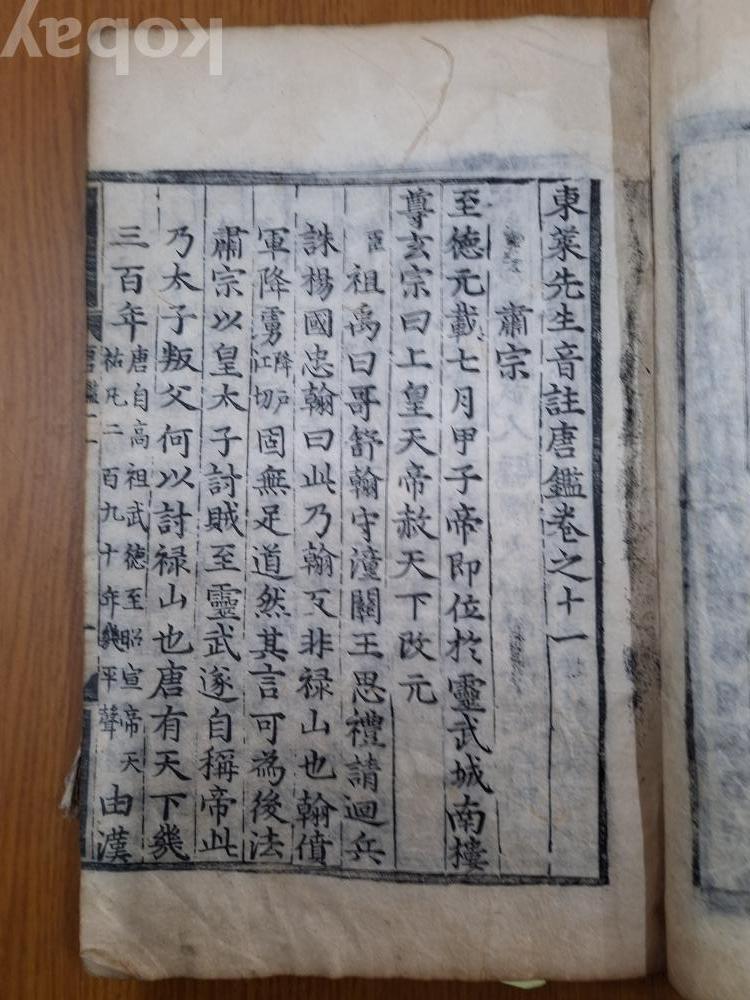 東萊先生音註唐鑑卷之十一
肅宗
至德元載七月甲子帝即位於靈武城南樓
尊玄宗曰上皇天帝赦天下改元
臣祖禹曰哥舒翰守潼關王思禮請迴兵
誅楊國忠翰曰此乃翰反非祿山也翰僨
軍降虜降戶江切固無足道然其言可為後法
肅宗以皇太子討賊至靈武遂自稱帝此
乃太子叛父何以討祿山也唐有天下幾
三百年唐自高祖武德至昭宣帝天祐凡二百九十年幾平聲由漢
唐鑑十一
一
kobay